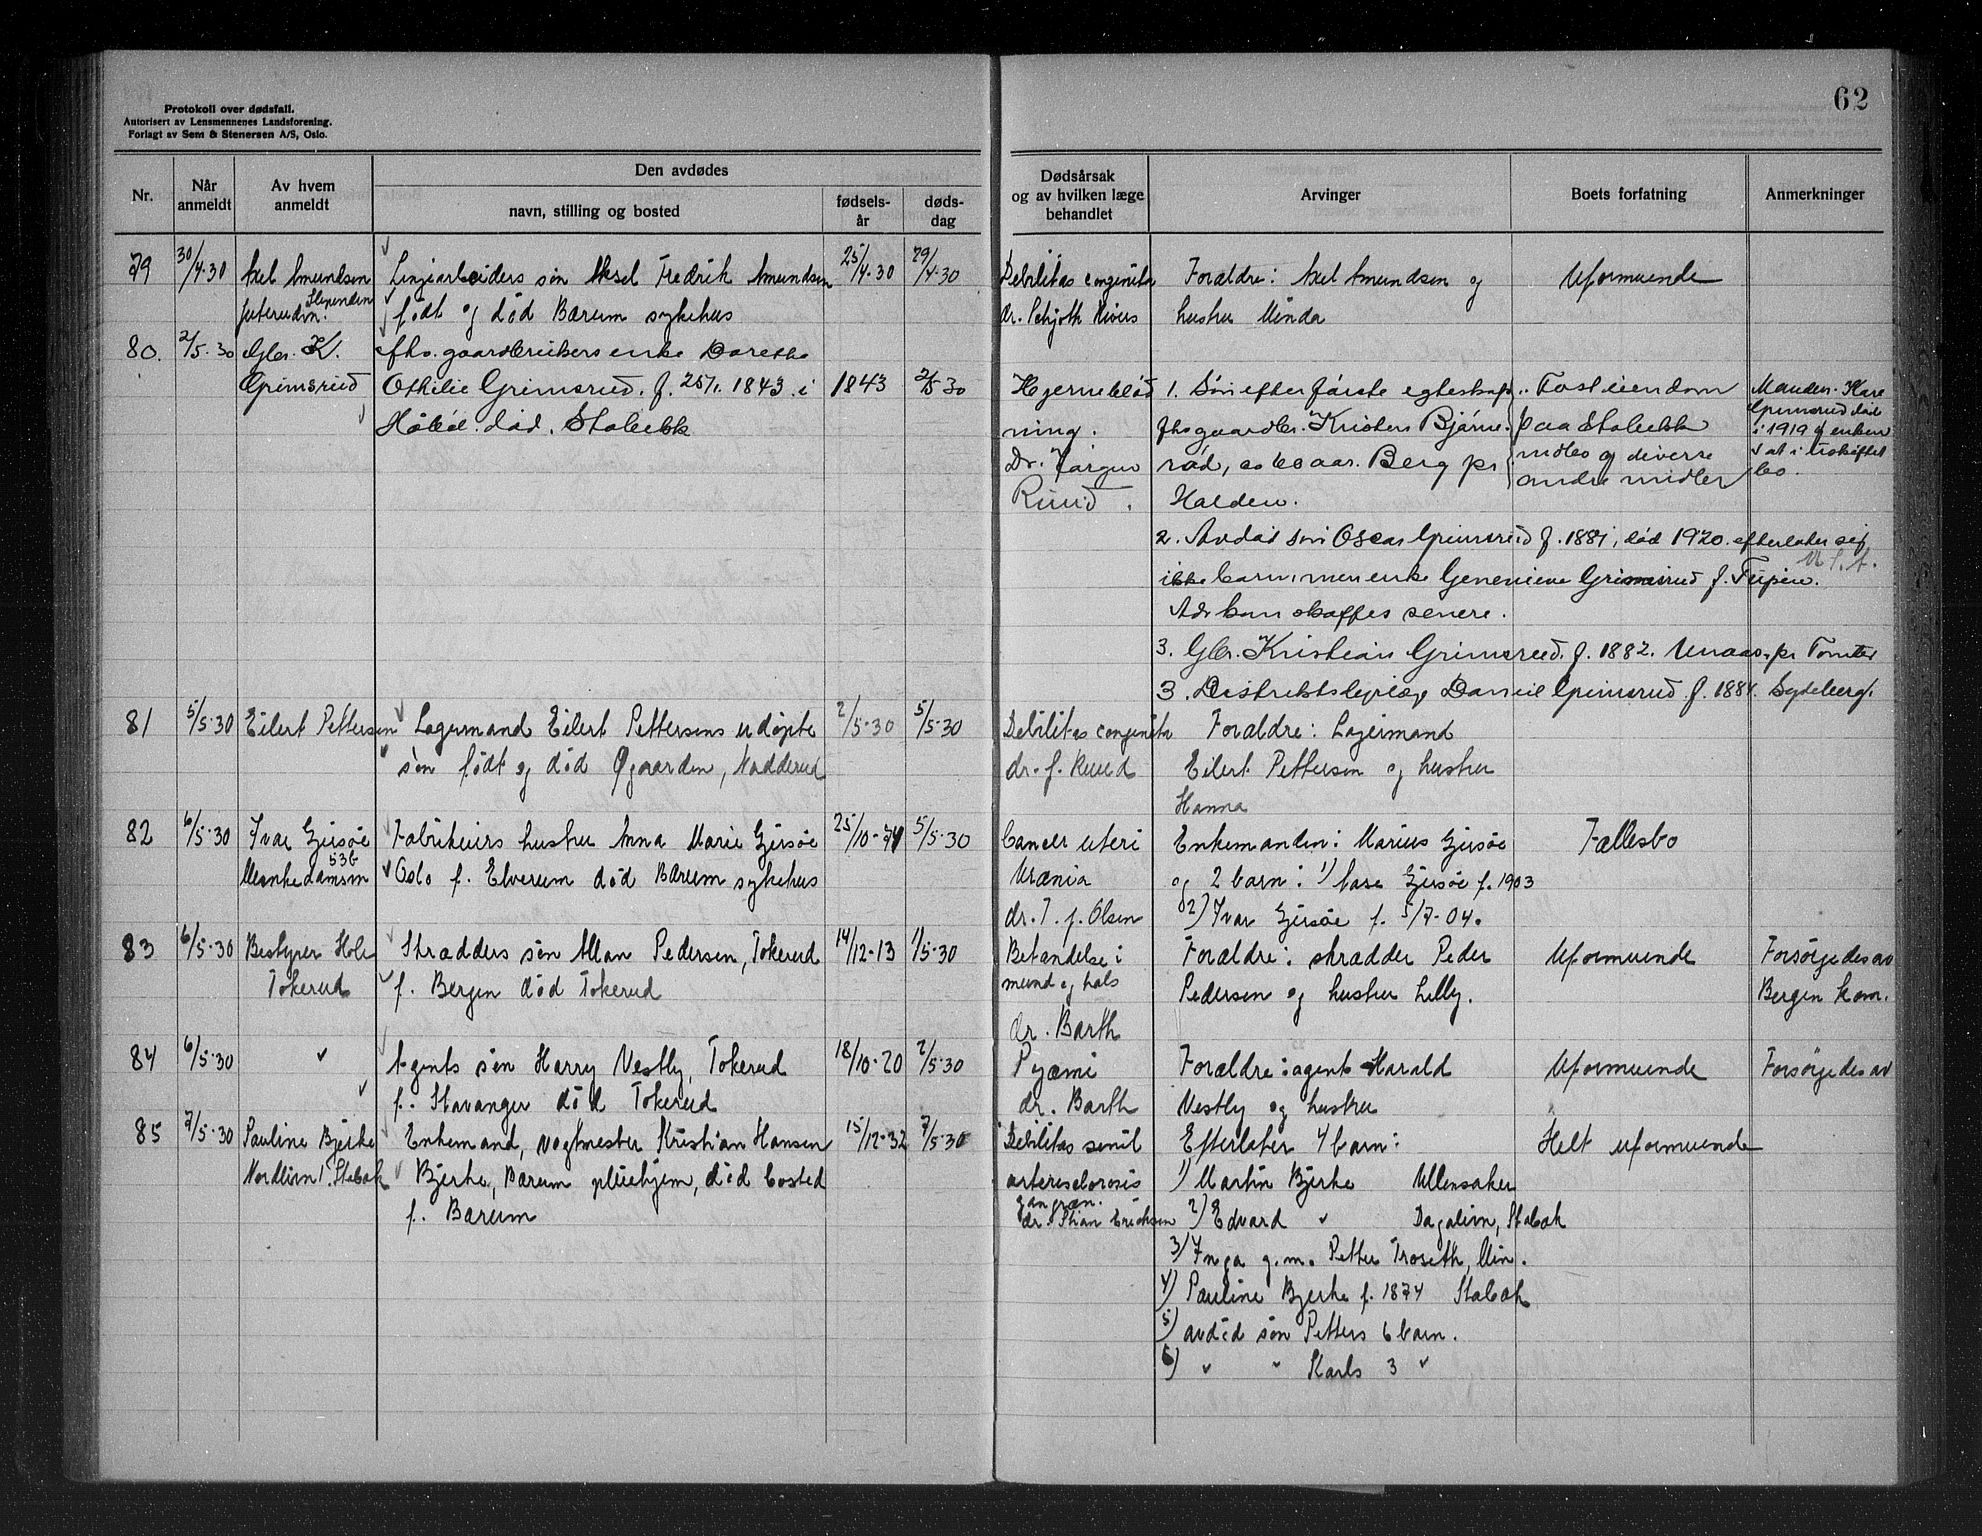 Protokoll over dødsfall.
Autorisert av Lensmennenes Landsforening.
Forlagt av Sem & Stenersen A/S, Oslo.
62
Nr.
Når anmeldt
Av hvem anmeldt
Den avdødes
navn, stilling og bosted
fødsels-år
døds-dag
Dødsårsak og av hvilken læge behandlet
Arvinger
Boets forfatning
Anmerkninger
79 30/4-30 Axel Amundsen Linjearbeiders søn Aksel Fredrik Amundsen 25/4-30 29/4-30 Debilitas congenita Forældre: Axel Amundsen og Uformuende
Slependen
Juterudvn. født og død Bærum sykehus dr. Schjøth Iversen hustru Minda
80. 2/5-30 Gbr. K. fhv. gaardbrukers enke Dorethe
Grimsrud Othilie Grimsrud. f. 25/1. 1843 i 1843 2/5 30 Hjerneblød 1. Søn efter første egteskap Fast eiendom Manden Kare
Høbøl. død. Stabekk ning. fhv gaardbr. Kristen Bjørne- paa Stabekk Grimsrud død
i 1919 og enken
Dr. Jørgen rød, ca 60 aar. Berg pr indbo og diverse sat i uskiftet
Ruud. Halden. andre midler bo.
2. Avdød søn Oscar Grimsrud f. 1881, død 1920. efterlater sig
ikke barn, men enke Genevieve Grimsrud f. U.S.A.
Adr kan skaffes senere.
3. Gbr. Kristian Grimsrud. f. 1882. pr. Tomter
3. Distriktslæge Daniel Grimsrud f. 1884. Sydeberg.
81 5/5-30 Eilert Pettersen Lagermand Eilert Pettersens udøpte 2/5-30 5/5-30 Debilitas congenita Forældre: Lagermand
søn født og død Øgaarden, Nadderud dr. J. Ruud Eilert Pettersen og hustru
Hanna
82 6/5-30 Ivar Gjersøe Fabrikeiers hustru Anna Marie Gjersøe 25/10-74 5/5-30 Cancer uteri Enkemanden: Marius Gjersøe Fællesbo
53b
Munkedamsvn Oslo f. Elverum død Bærum sykehus Uræmia og 2 barn: 1) Gjersøe f. 1903
dr. T. J. Olsen 2) Ivar Gjersøe f. 5/7-04.
83 6/5-30 Bestyrer Hole Skrædders søn Allan Pedersen, Tokerud 14/12-13 1/5-30 Betændelse i Forældre: skrædder Peder Uformuende Forsørgedes av
Tokerud f. Bergen død Tokerud mund og hals Pedersen og hustru Lelly. Bergen kom.
dr. Barth
84 6/5-30 " Agents søn Harry Vestly, Tokerud 18/10-20 2/5-30 Pyæmi Forældre: agent Harald Uformuende Forsørgedes av
f. Stavanger død Tokerud dr. Barth Vestly og hustru
85 7/5-30 Pauline Bjerke Enkemand, vogtmester Kristian Hansen 15/12-32 7/5-30 Debilitas senil Efterlater 4 barn: Helt uformuende
Stabæk Bjerke, Bærum pleiehjem, død bosted arteriosclorosis 1) Martin Bjerke Ullensaker
f. Bærum gangræn.
dr. Stian Erichsen 2) Edvard " Dagalivn, Stabæk
3) Inga g.m. Petter Troseth,
4) Pauline Bjerke f. 1874 Stabæk
5) avdød søn Petters 6 barn.
6) " " Karls 3 "